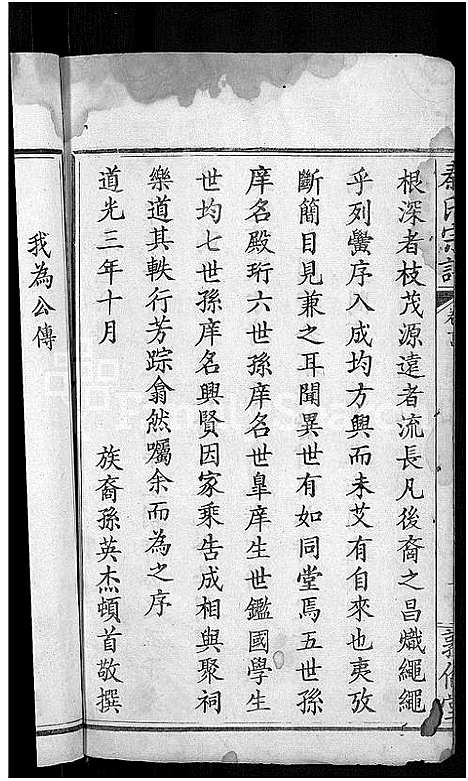 氏宗譜
根深者枝茂源遠者流長凡後裔之昌熾繩繩
乎列黌序入成均方興而未艾有自來也夷攷
斷簡目見兼之耳聞異世有如同堂焉五世孫
庠名殿珩六世孫庠名世臯庠生世鑑國學生
世均七世孫庠名興賢因家乘告成相與聚祠
樂道其軼行芳踪翕然囑余而為之序
道光三年十月　族裔孫英杰頓首敬撰
我為公傳